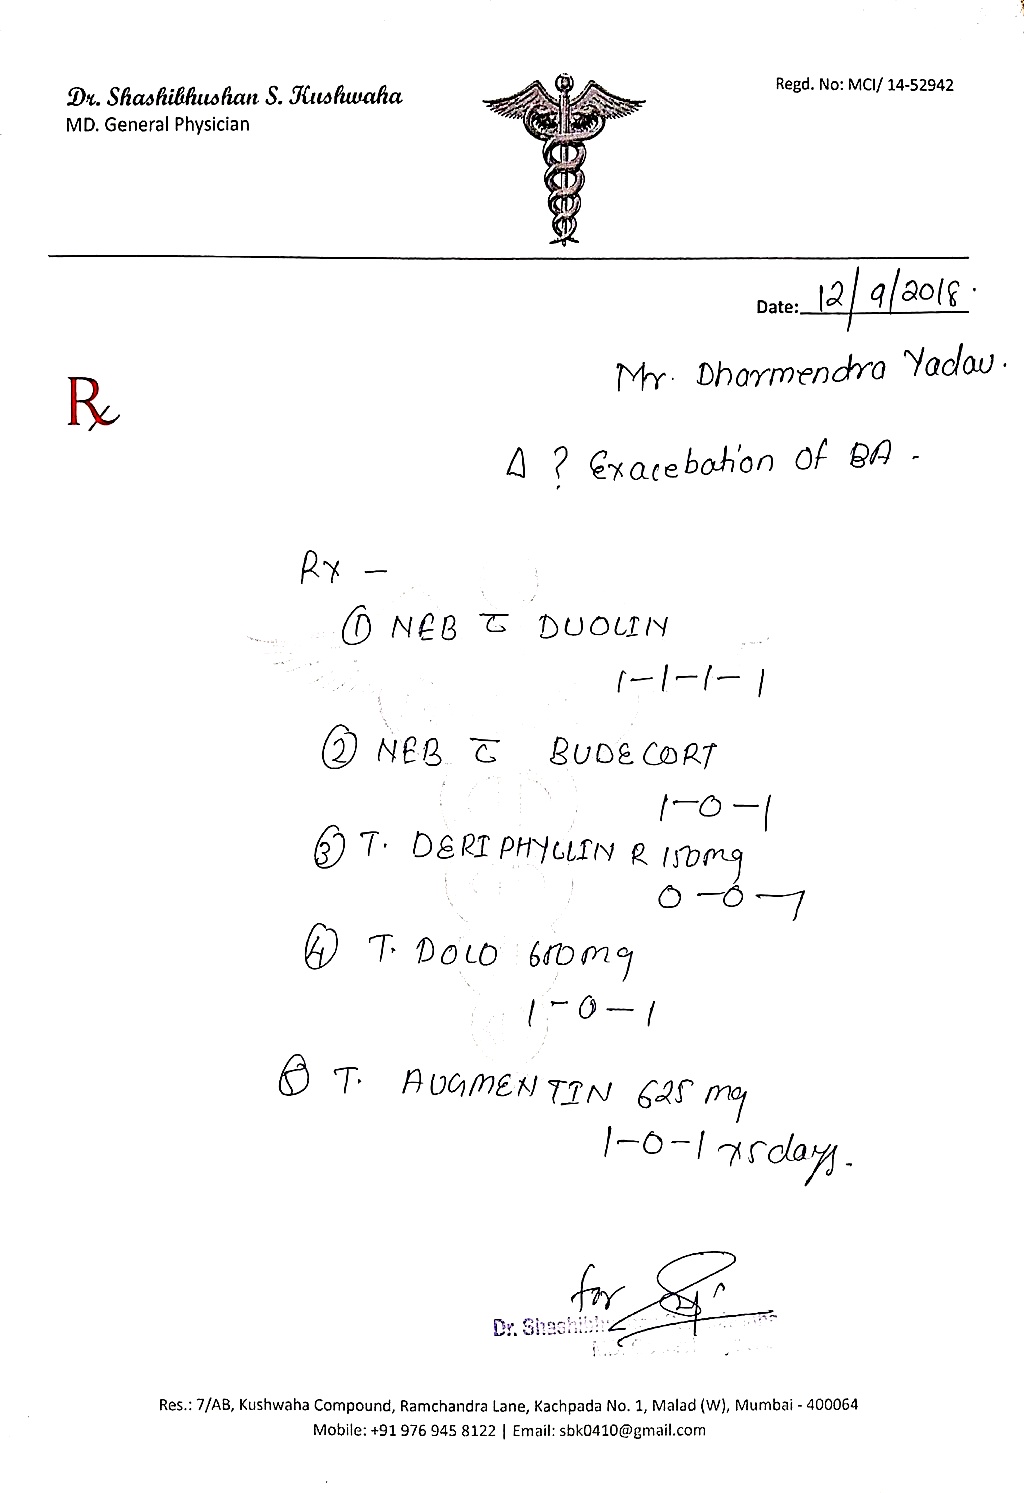 Dr. Shashibhushan S. Kushwaha
MD. General Physician
Regd. No: MCI/ 14-52942
Date: 12/9/2018.
Mr. Dharmendra Yadav.
Rx
Δ ? Exacebation of BA.
Rx –
① NEB c̅ DUOLIN
1-1-1-1
② NEB c̅ BUDECORT
1-0-1
③ T. DERIPHYLLIN R 150mg
0-0-1
④ T. DOLO 650mg
1-0-1
⑤ T. AUGMENTIN 625 mg
1-0-1 x 5 days.
for
Dr. Shashibh
Res.: 7/AB, Kushwaha Compound, Ramchandra Lane, Kachpada No. 1, Malad (W), Mumbai - 400064
Mobile: +91 976 945 8122 | Email: sbk0410@gmail.com